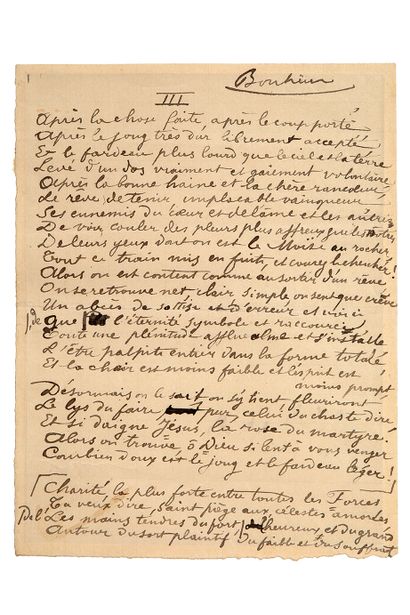 Bonheur
III
Après la chose faite après le coup porté
Après le joug très dur librement accepté
Et le fardeau plus lourd que le ciel et la terre
Levé d'un dos vraiment et gaiement volontaire
Après la bonne haine et la chère rancœur
Le rêve de tenir, implacable vainqueur
Les ennemis du cœur et de l'âme et les autres
De voir couler des pleurs plus affreux que les nôtres
De leurs yeux dont on est le Moïse au rocher
Tout ce train mis en fuite et courez le chercher !
Alors on est content comme au sortir d'un rêve
On se retrouve net clair simple on sent que crève
Un abcès de sottise et d'erreur et voici
Que de l'éternité symbole et raccourci
Toute une plénitude afflue aime et s'installe
L'être palpite entier dans la forme totale
Et la chair est moins faible et l'esprit est
moins prompt
Désormais on le sait on s'y tient fleuriront
Le lys du faire pur, celui du chaste dire
Et si daigne Jésus, la rose du martyre.
Alors on trouve ô Dieu si lent à vous venger
Combien doux est le joug et le fardeau léger !
Charité la plus forte entre toutes les Forces
Tu veux dire, saint piège aux célestes amorces
Les mains tendres du fort de l'heureux et du grand
Autour du sort plaintif du faible et du souffrant